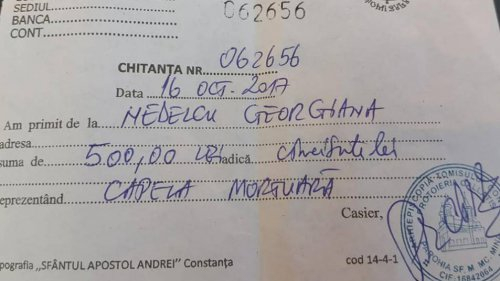 SEDIUL
BANCA
CONT.
062656
CHITANȚA NR. 062656
Data 16 OCT. 2017
Am primit de la NEDELCU GEORGIANA
adresa
suma de 500,00 LEI adică cincisute lei
reprezentând CAPELA MORTUARĂ
Casier,
pografia „SFÂNTUL APOSTOL ANDREI" Constanța
cod 14-4-1
ARHIEPISCOPIA TOMISULUI
PROTOIERIA
PAROHIA SF. M. MC. MINA
CIF: 16842064